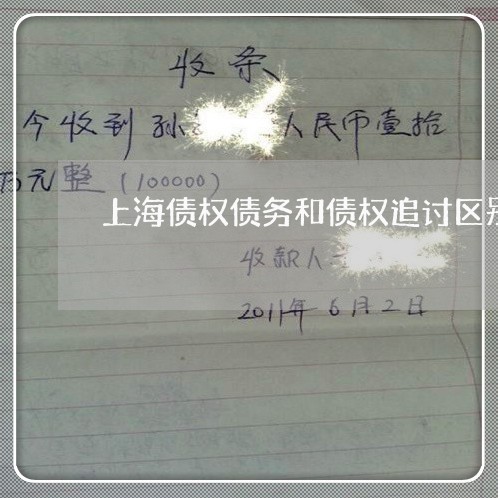 收条
今收到孙 人民币壹拾
万元整(100000)
上海债权债务和债权追讨区别
收款人
2011年6月2日